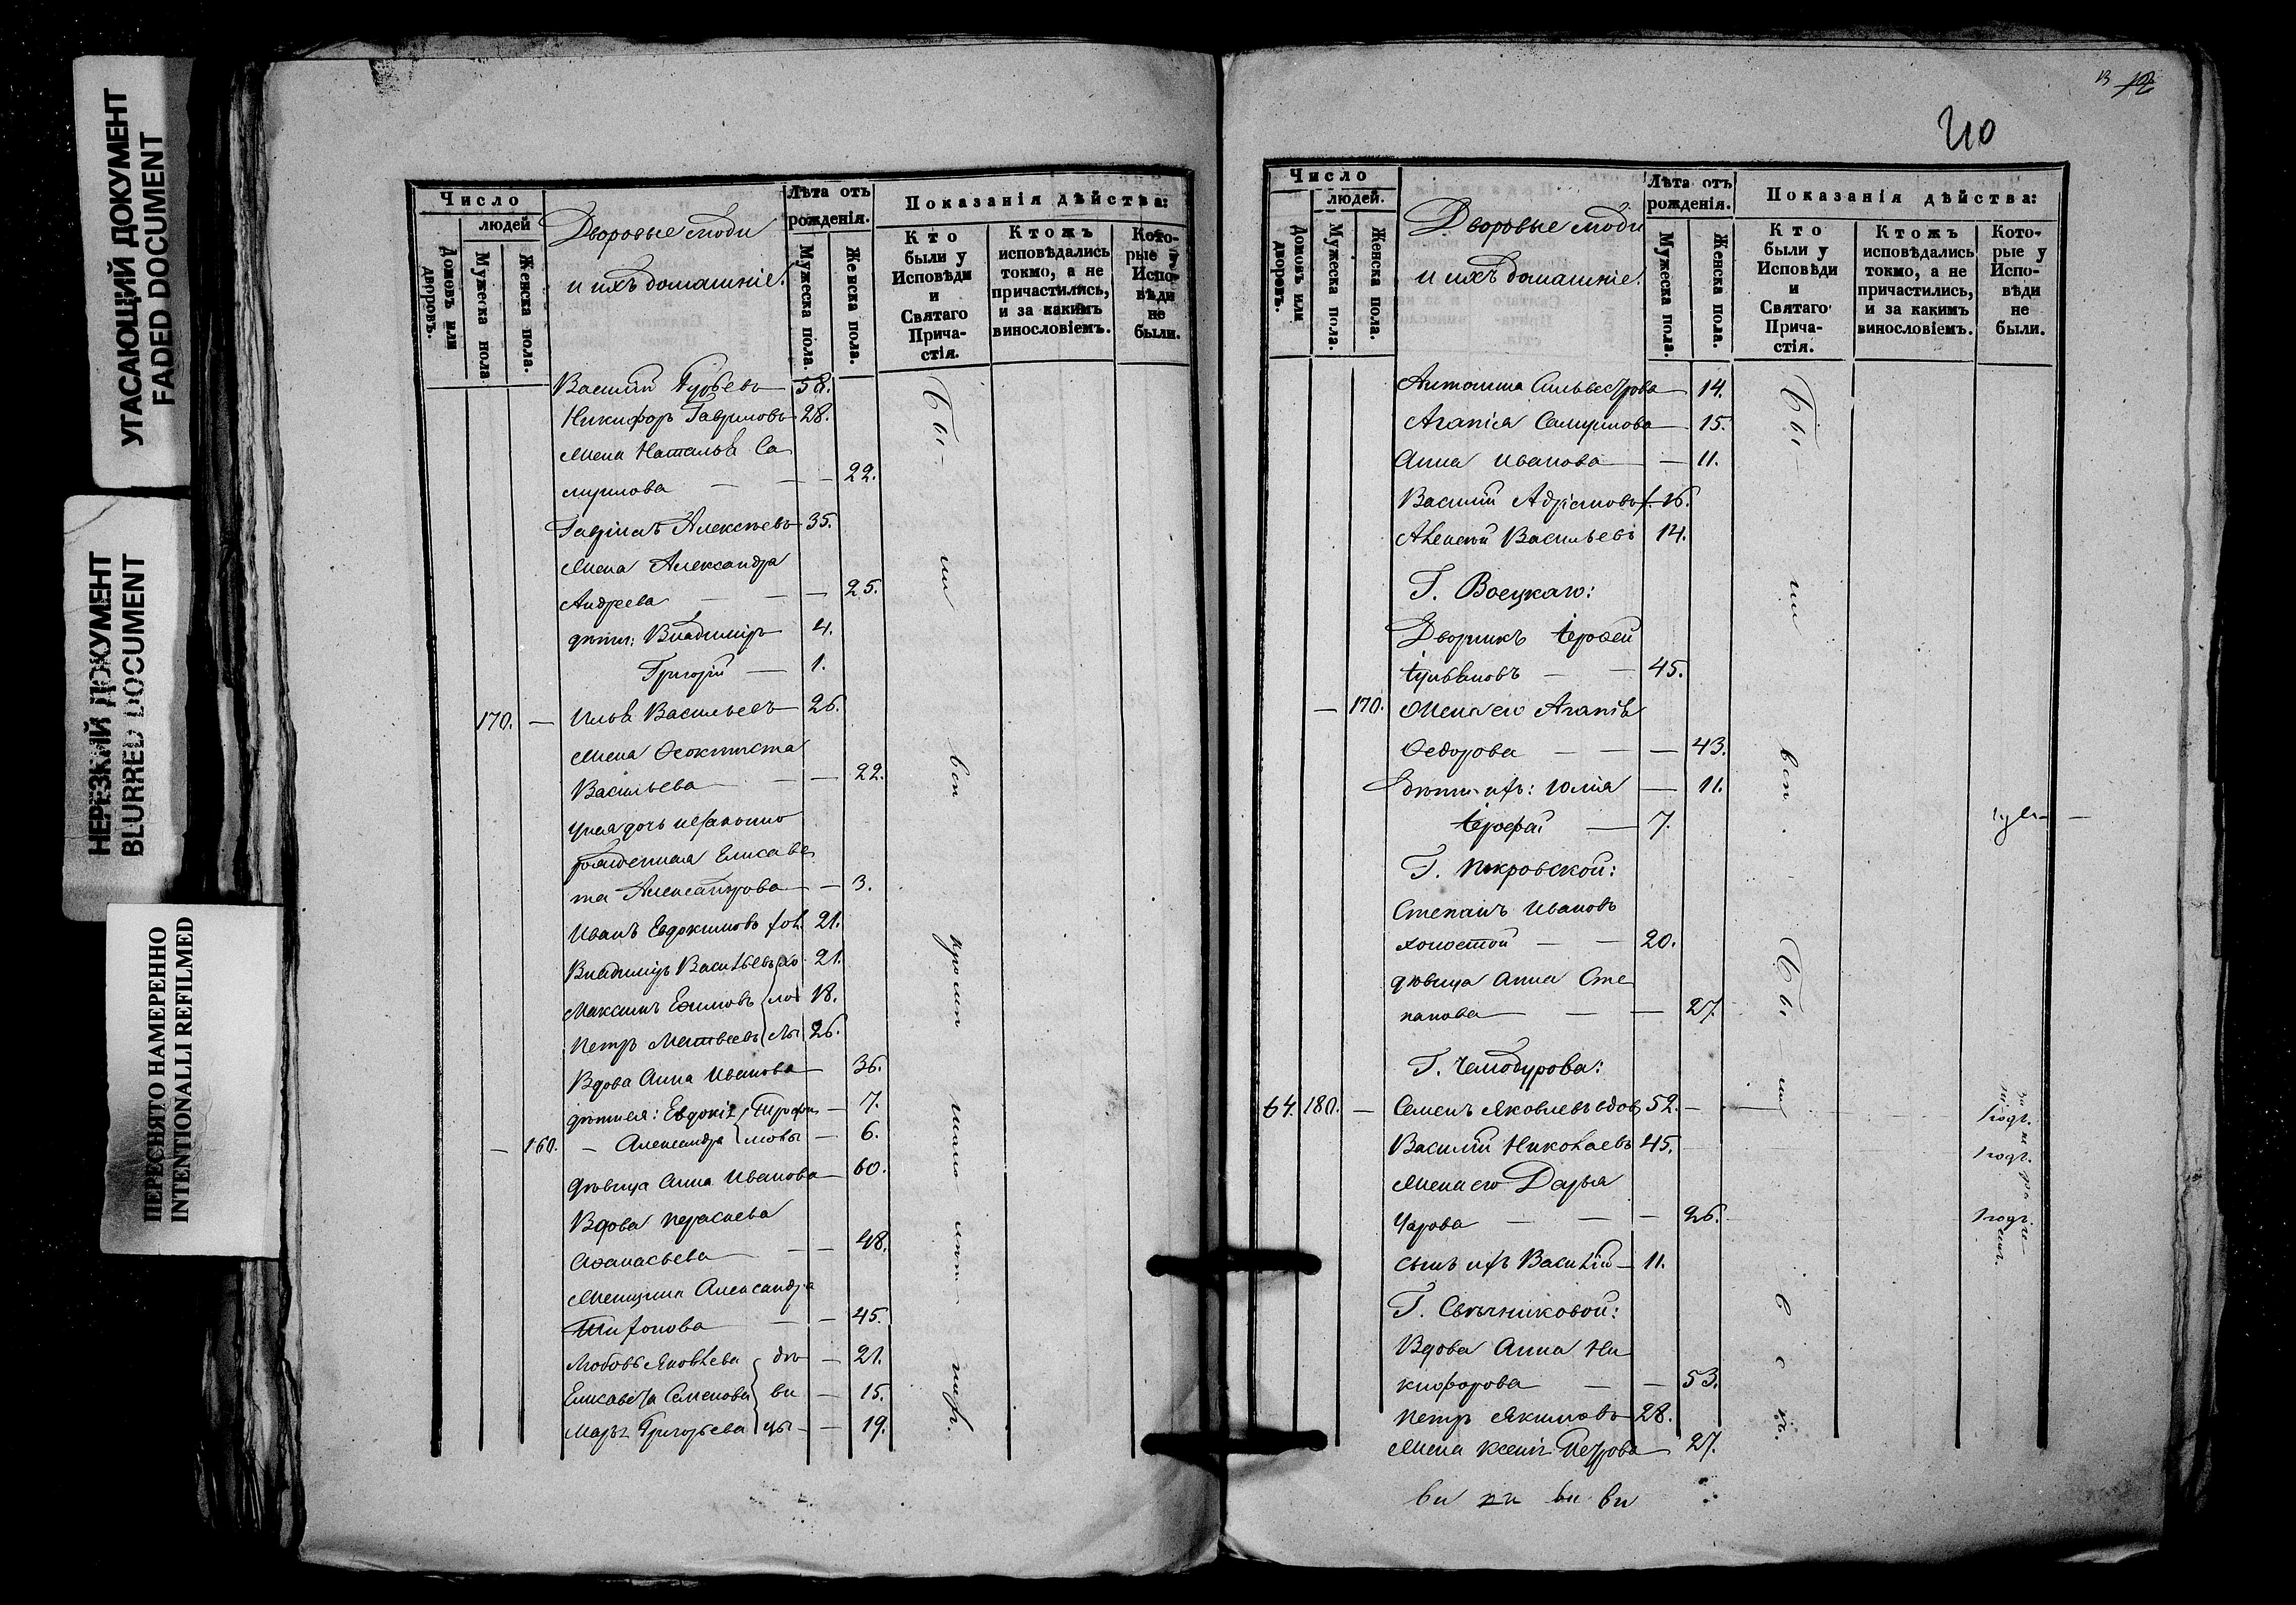 УГАСАЮЩИЙ ДОКУМЕНТ
FADED DOCUMENT
НЕРЕЗКИЙ ДОКУМЕНТ
BLURRED DOCUMENT
ПЕРЕСНЯТО НАМЕРЕННО
INTENTIONALLI REFILMED
Число
людей
Домовъ или дворовъ.
Мужеска пола
Женска пола.
Дворовые люди
и ихъ домашніе.
Лѣта отъ рожденія.
Мужеска пола.
Женска пола.
Показанія дѣйства:
Кто были у Исповѣди и Святаго Причастія.
Ктожъ исповѣдались токмо, а не причастились, и за какимъ винословіемъ.
Которые у Исповѣди не были.
Василій Гурьевъ 58.
Никифоръ Гавриловъ 28.
Жена Наталья Са
мурилова — — 22.
Гавріилъ Алексѣевъ 35.
Жена Александра
Андреева — — 25.
дѣти: Владиміръ 4.
Григорій — 1.
170. — Илья Васильевъ 26.
Жена Ѳеоктиста
Васильева — 22.
у нея дочь незаконно
рожденная Елисаве
та Александрова — 3.
Иванъ Евдокимовъ хол. 21.
Владиміръ Васильевъ хо 21.
Максимъ Ефимовъ лос 18.
Петръ Матвеевъ лы 26.
Вдова Анна Иванова — 36.
дѣти ея: Евдокія Трофи — 7.
— 160. — Александра мовы — 6.
дѣвица Анна Иванова — 60.
Вдова Параскева
Аѳанасьева — — 48.
Женщина Александра
— — 45.
Любовь Яковлева дѣ — 21.
Елисавета Семенова ви — 15.
Марья Григорьева цы — 19.
Бы — ли вси
13 12
210
Число
людей.
Домовъ или дворовъ.
Мужеска пола.
Женска пола.
Дворовые люди
и ихъ домашніе.
Лѣта отъ рожденія.
Мужеска пола.
Женска пола.
Показанія дѣйства:
Кто были у Исповѣди и Святаго Причастія.
Ктожъ исповѣдались токмо, а не причастились, и за какимъ винословіемъ.
Которые у Исповѣди не были.
Антонина Сильвестрова — 14.
Агапія Самуилова — 15.
Анна Иванова — 11.
Василій Адріановъ 16.
Алексѣй Васильевъ 14.
Г. Воецкаго:
Дворникъ Іероѳей
45.
— 170. Жена его Агапія
Ѳедорова — — — 43.
дѣти ихъ: Юлія — 11.
Іероѳей — 7.
Г. Покровской:
Степанъ Ивановъ
холостой — — 20.
дѣвица Анна Сте
панова — — — 27.
Г. Чемодурова:
64. 180. — Семенъ Яковлевъ вдов 52. — годъ.
Василій Николаевъ 45. 1 годъ.
Жена его Дарья
— — — 26. 1 годъ.
сынъ ихъ Василій — 11.
Г. Свѣчниковой:
Вдова Анна Ни
кифорова — — 53.
Петръ Якимовъ 28.
Жена Ксенія Петрова 27.
Бы — ли вси
Бы — ли